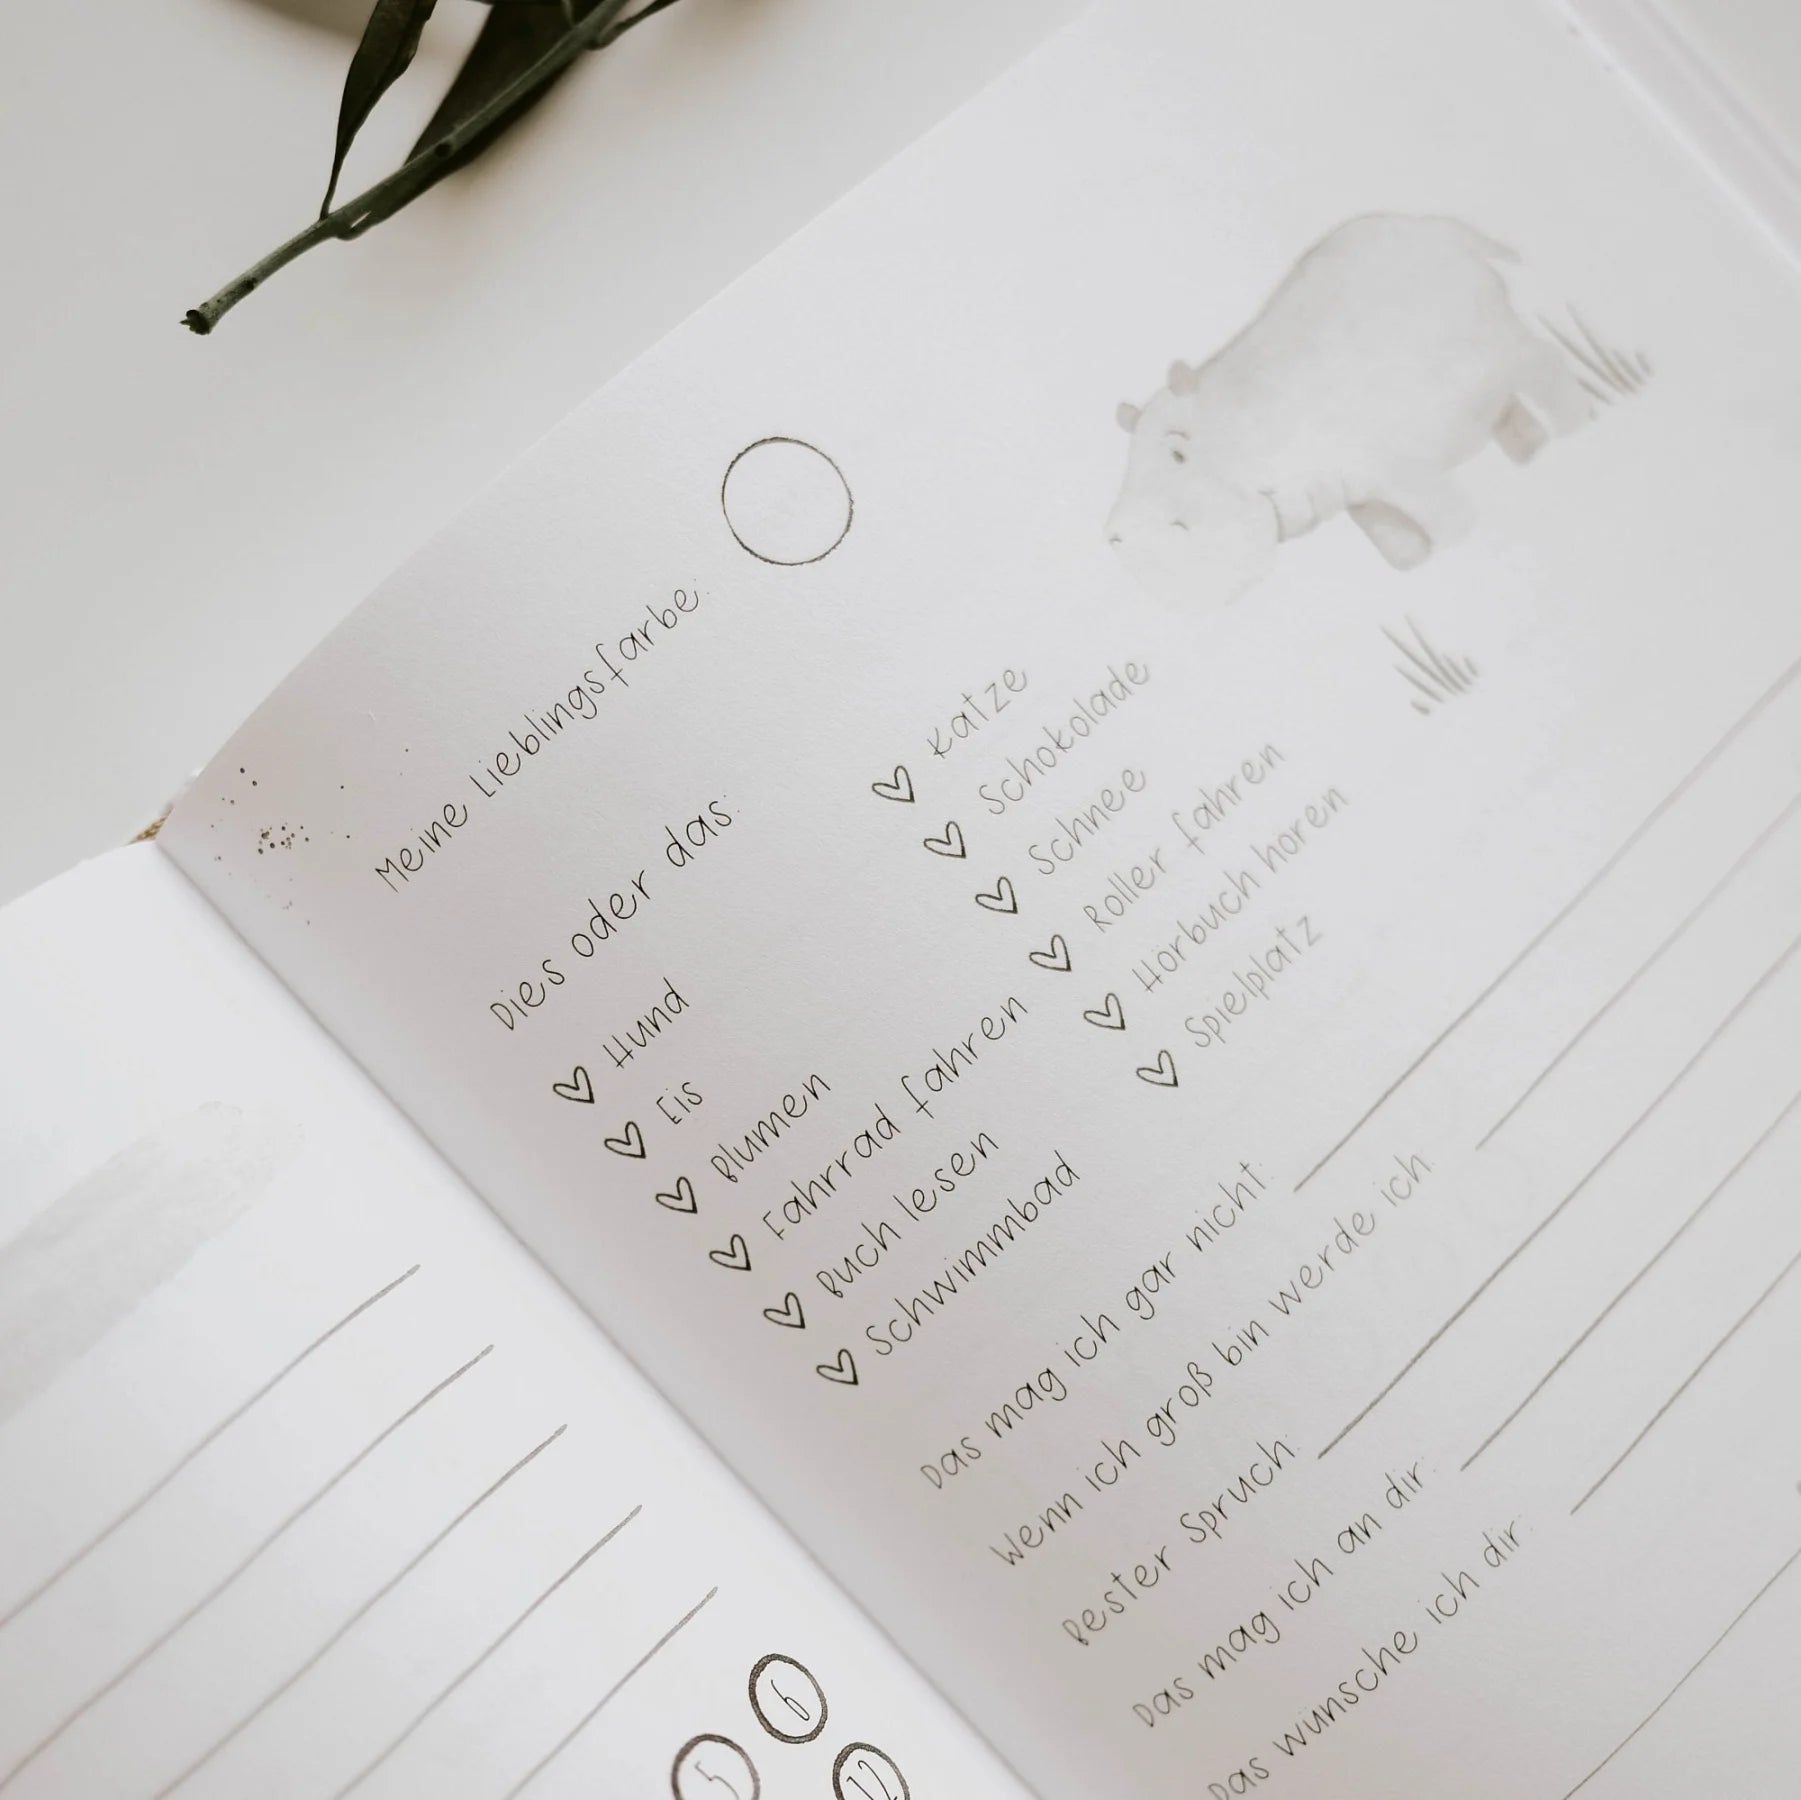 Meine Lieblingsfarbe:
Dies oder das:
Hund Katze
Eis Schokolade
Blumen Schnee
Fahrrad fahren Roller fahren
Buch lesen Hörbuch hören
Schwimmbad Spielplatz
Das mag ich gar nicht:
Wenn ich groß bin werde ich:
Bester Spruch:
Das mag ich an dir:
Das wünsche ich dir:
5 6
12